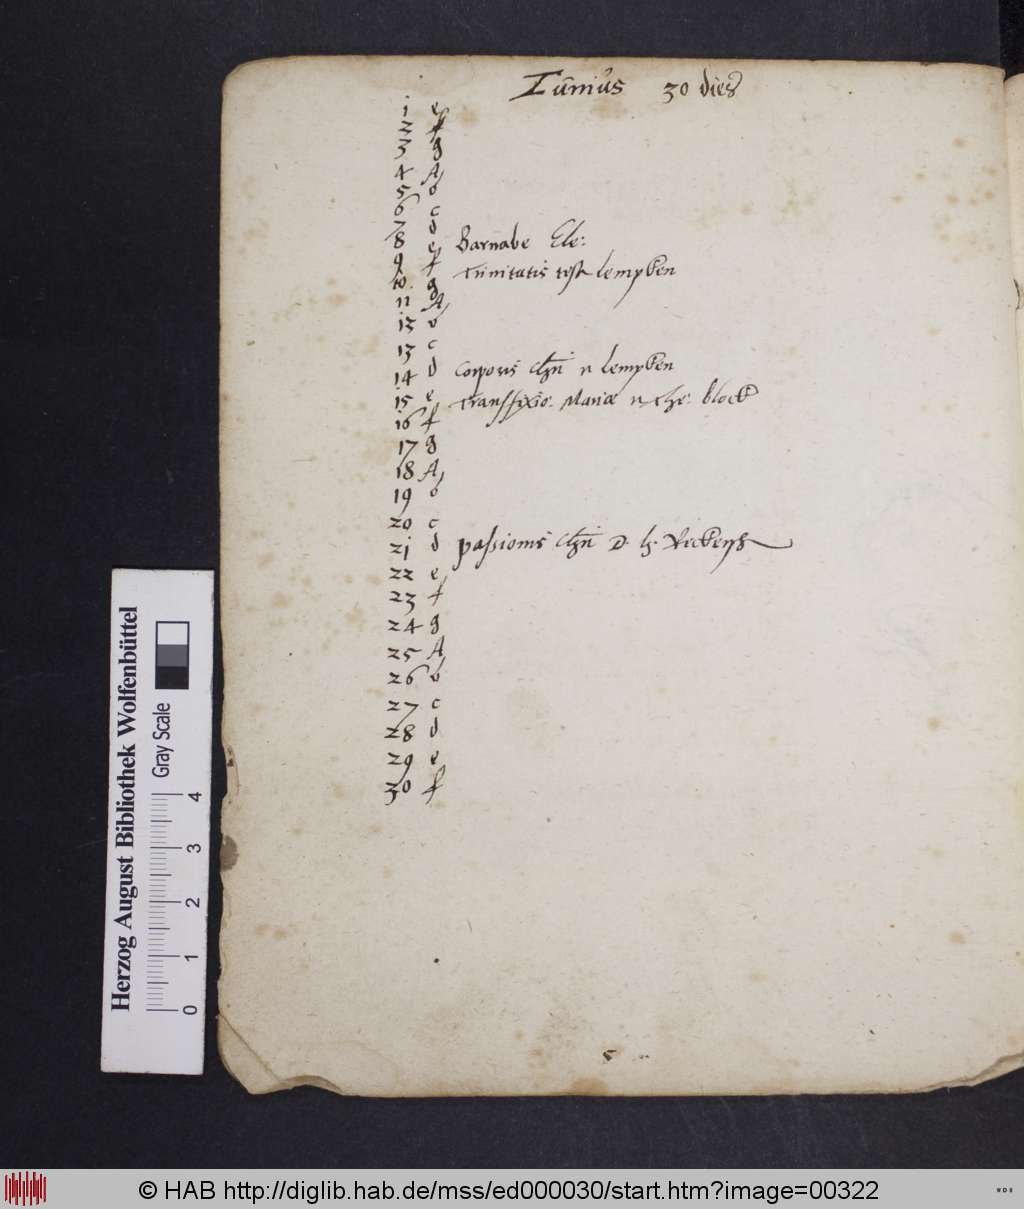 Iunius 30 dies
1 e
2 f
3 g
4 A
5 b
6 c
7 d
8 e Barnabe Ele:
9 f Trinitatis test lempken
10. g
11 A
13 b
13 c
14 d Corporis chri n lempken
15 e Transfixio. Mariæ n. Che. block
16 f
17 g
18 A
19 b
20 c
21 d passionis chri D. h.
22 e
23 f
24 g
25 A
26 b
27 c
28 d
29 e
30 f
5
Herzog August Bibliothek Wolfenbüttel
Gray Scale
0 1 2 3 4
© HAB http://diglib.hab.de/mss/ed000030/start.htm?image=00322